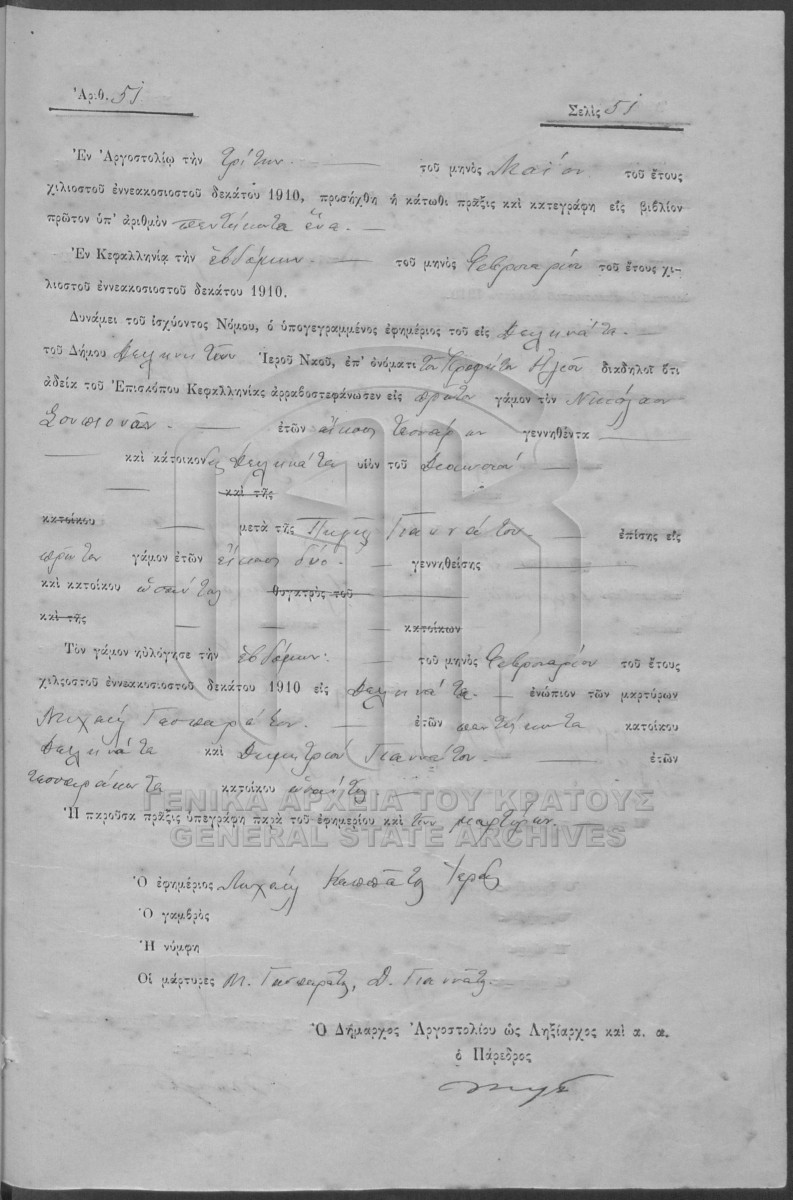 Ἀριθ. 51
Σελὶς 51
Ἐν Ἀργοστολίῳ τὴν τρίτην τοῦ μηνὸς Μαΐου τοῦ ἔτους
χιλιοστοῦ ἐννεακοσιοστοῦ δεκάτου 1910, προσήχθη ἡ κάτωθι πρᾶξις καὶ κατεγράφη εἰς βιβλίον
πρῶτον ὑπ' ἀριθμὸν πεντήκοντα ἕνα.
Ἐν Κεφαλληνίᾳ τὴν ἑβδόμην τοῦ μηνὸς Φεβρουαρίου τοῦ ἔτους χι-
λιοστοῦ ἐννεακοσιοστοῦ δεκάτου 1910.
Δυνάμει τοῦ ἰσχύοντος Νόμου, ὁ ὑπογεγραμμένος ἐφημέριος τοῦ εἰς Δειλινάτα
τοῦ Δήμου Ἱεροῦ Ναοῦ, ἐπ' ὀνόματι τοῦ Προφήτου Ηλιοὺ διαδηλοῖ ὅτι
ἀδείᾳ τοῦ Ἐπισκόπου Κεφαλληνίας ἀρραβοστεφάνωσεν εἰς πρῶτον γάμον τὸν Νικόλαον
ἐτῶν εἴκοσι τεσσάρων γεννηθέντα
καὶ κάτοικον Δειλινάτα υἱὸν τοῦ Διονυσίου
καὶ τῆς
κατοίκου μετὰ τῆς Γιαννάτου ἐπίσης εἰς
πρῶτον γάμον ἐτῶν εἴκοσι δύο. γεννηθείσης
καὶ κατοίκου ὡσαύτως θυγατρὸς τοῦ
καὶ τῆς κατοίκων
Τὸν γάμον ηὐλόγησε τὴν ἑβδόμην τοῦ μηνὸς Φεβρουαρίου τοῦ ἔτους
χιλιοστοῦ ἐννεακοσιοστοῦ δεκάτου 1910 εἰς Δειλινάτα ἐνώπιον τῶν μαρτύρων
Μιχαὴλ Γασπαράτου ἐτῶν πεντήκοντα κατοίκου
Δειλινάτα καὶ Δημητρίου Γιαννάτου ἐτῶν
τεσσαράκοντα κατοίκου ὡσαύτως
ΓΕΝΙΚΑ ΑΡΧΕΙΑ ΤΟΥ ΚΡΑΤΟΥΣ
Ἡ παροῦσα πρᾶξις ὑπεγράφη παρὰ τοῦ ἐφημερίου καὶ τῶν μαρτύρων.
GENERAL STATE ARCHIVES
Ὁ ἐφημέριος Μιχαὴλ Καππάτος Ἱερεὺς
Ὁ γαμβρὸς
Ἡ νύμφη
Οἱ μάρτυρες Μ. Γασπαράτος, Δ. Γιαννάτος
Ὁ Δήμαρχος Ἀργοστολίου ὡς Ληξίαρχος καὶ α. α.
ὁ Πάρεδρος